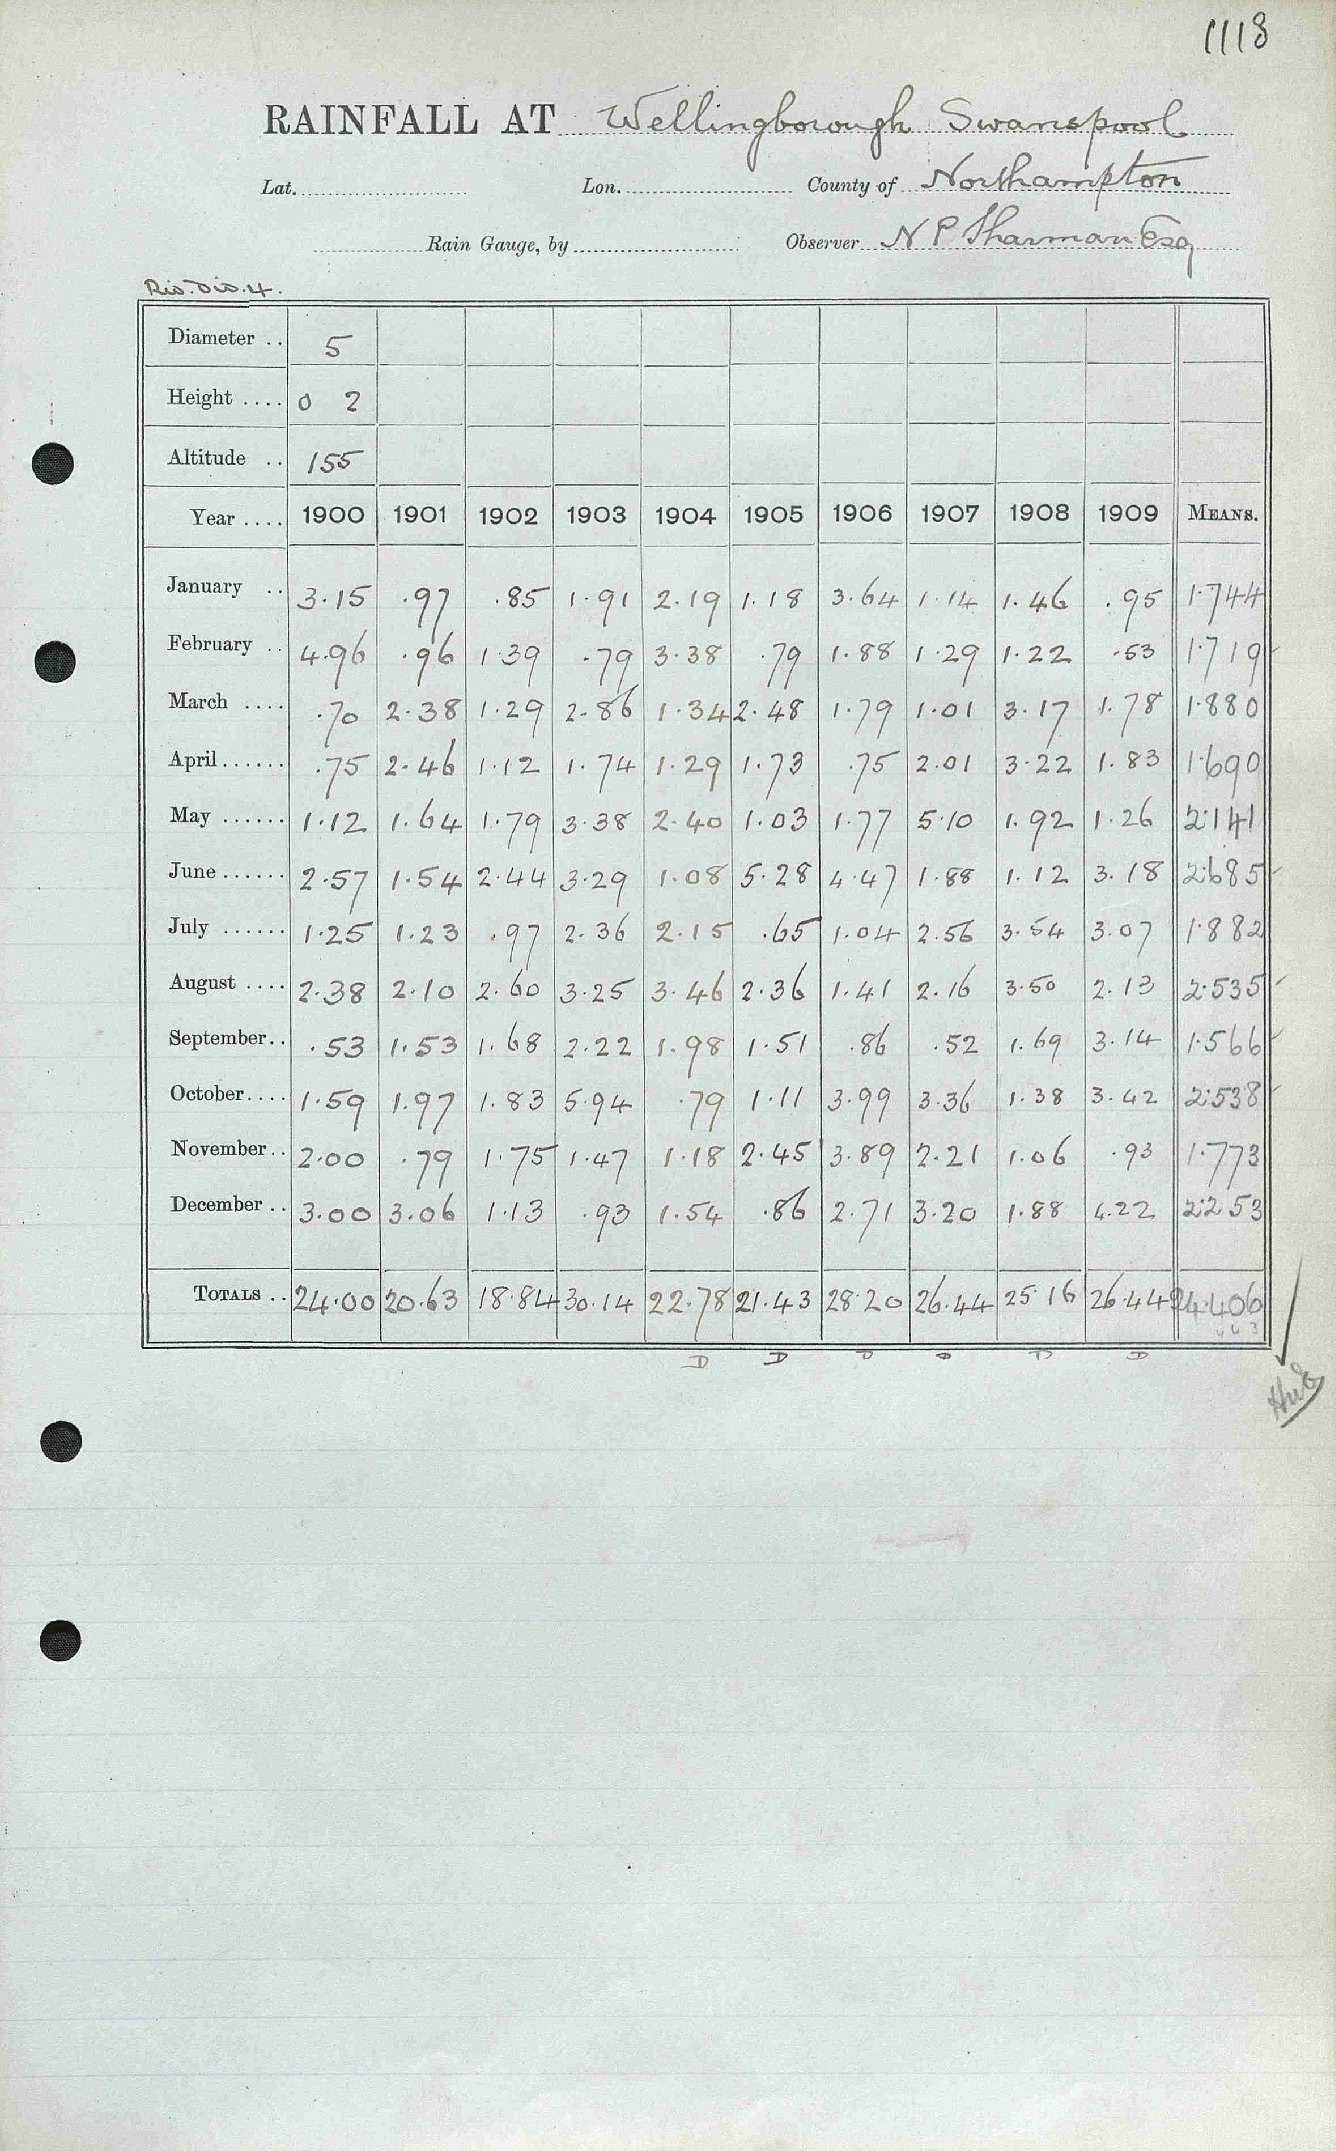 1118
RAINFALL AT Wellingborough Swanspool
Lat. Lon. County of Northampton
Rain Gauge, by Observer N P Sharman Esq
Riv. Div. 4.
Diameter .. 5
Height .... 0 2
Altitude .. 155
Year .... 1900 1901 1902 1903 1904 1905 1906 1907 1908 1909 MEANS.
January .. 3.15 .97 .85 1.91 2.19 1.18 3.64 1.14 1.46 .95 1.744
February .. 4.96 .96 1.39 .79 3.38 .79 1.88 1.29 1.22 .53 1.719
March .... .70 2.38 1.29 2.86 1.34 2.48 1.79 1.01 3.17 1.78 1.880
April ...... .75 2.46 1.12 1.74 1.29 1.73 .75 2.01 3.22 1.83 1.690
May ...... 1.12 1.64 1.79 3.38 2.40 1.03 1.77 5.10 1.92 1.26 2.141
June ...... 2.57 1.54 2.44 3.29 1.08 5.28 4.47 1.88 1.12 3.18 2.685
July ...... 1.25 1.23 .97 2.36 2.15 .65 1.04 2.56 3.54 3.07 1.882
August .... 2.38 2.10 2.60 3.25 3.46 2.36 1.41 2.16 3.50 2.13 2.535
September .. .53 1.53 1.68 2.22 1.98 1.51 .86 .52 1.69 3.14 1.566
October .... 1.59 1.97 1.83 5.94 .79 1.11 3.99 3.36 1.38 3.42 2.538
November .. 2.00 .79 1.75 1.47 1.18 2.45 3.89 2.21 1.06 .93 1.773
December .. 3.00 3.06 1.13 .93 1.54 .86 2.71 3.20 1.88 4.22 2.253
TOTALS .. 24.00 20.63 18.84 30.14 22.78 21.43 28.20 26.44 25.16 26.44 24.406
D D D D D D